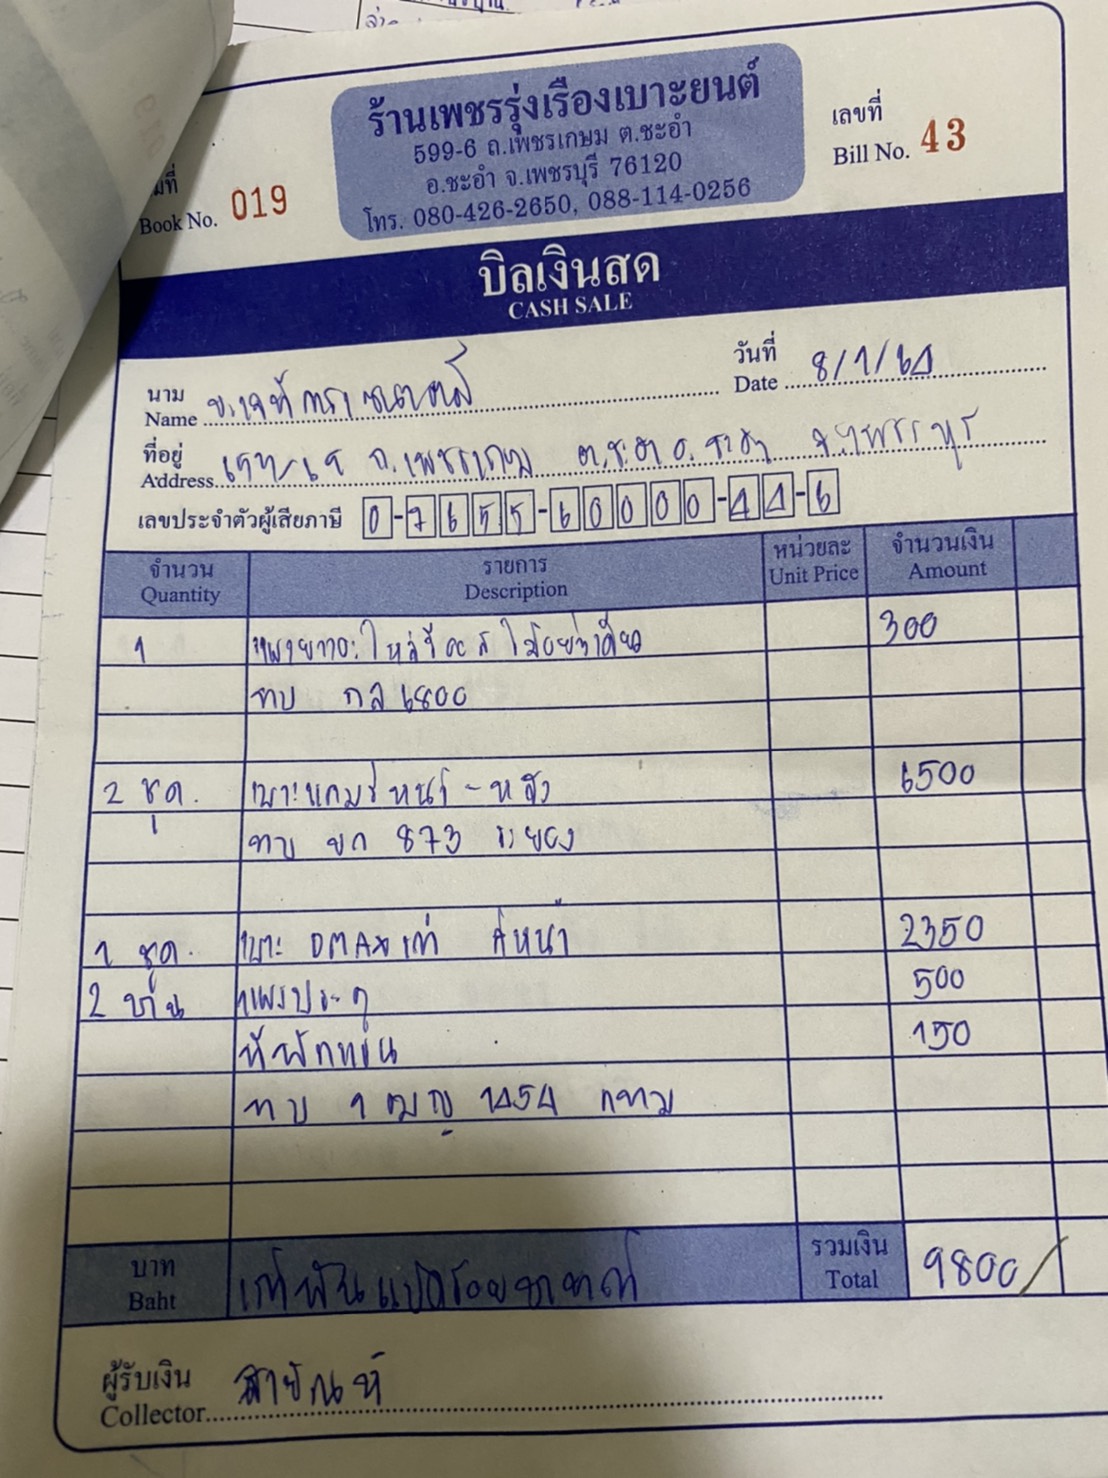 ร้านเพชรรุ่งเรืองเบาะยนต์
599-6 ถ.เพชรเกษม ต.ชะอำ
อ.ชะอำ จ.เพชรบุรี 76120
โทร. 080-426-2650, 088-114-0256
Book No. 019
เลขที่
Bill No. 43
บิลเงินสด
CASH SALE
นาม
Name
วันที่
Date 8/1/64
ที่อยู่
Address ถ.เพชรเกษม ต.ชะอำ อ.ชะอำ จ.เพชรบุรี
เลขประจำตัวผู้เสียภาษี 0-7655-60000-44-6
จำนวน รายการ หน่วยละ จำนวนเงิน
Quantity Description Unit Price Amount
1 300
ทบ กล 6800
2 ชุด. เบาะแคมรี่ หน้า - หลัง 6500
ทบ ขก 873 ระยอง
1 ชุด. เบาะ DMAX เก่า คู่หน้า 2350
2 บาน แผงประตู 500
ที่พักแขน 150
ทบ 1 ฒญ 1454 กทม
บาท
Baht เก้าพันแปดร้อยบาทถ้วน
รวมเงิน
Total 9800/
ผู้รับเงิน
Collector สายัณห์